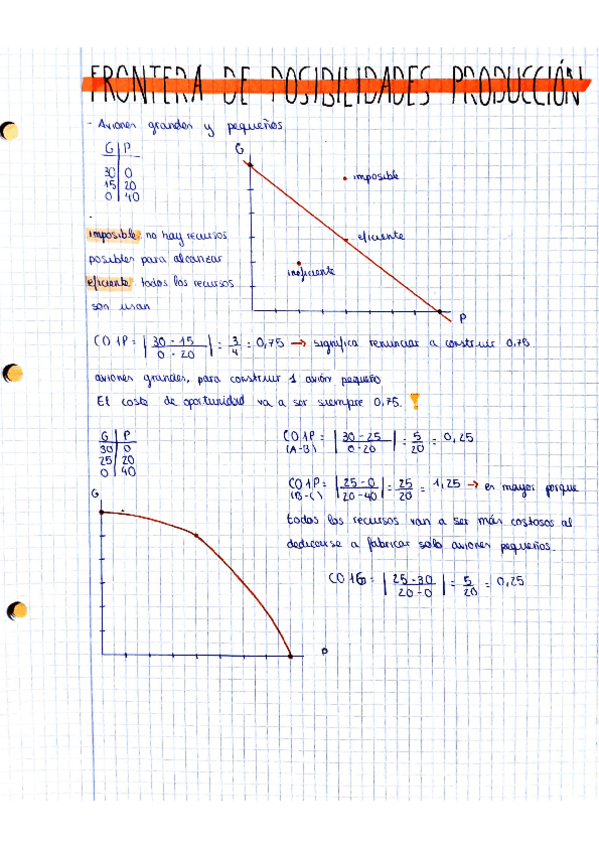 FRONTERA DE POSIBILIDADES PRODUCCIÓN
- Aviones grandes y pequeños
G | P
30 | 0
15 | 20
0 | 40
G
imposible
eficiente
ineficiente
P
imposible: no hay recursos
posibles para alcanzar
eficiente: todos los recursos
son usan
CO 1P = | 30 - 15 / 0 - 20 | = 3/4 = 0,75 → significa renunciar a construir 0,75
aviones grandes, para construir 1 avión pequeño
El coste de oportunidad va a ser siempre 0,75. !
G | P
30 | 0
25 | 20
0 | 40
CO 1P = | 30 - 25 / 0 - 20 | = 5/20 = 0,25
(A-B)
CO 1P = | 25 - 0 / 20 - 40 | = 25/20 = 1,25 → es mayor porque
(B-C)
todos los recursos van a ser más costosos al
dedicarse a fabricar solo aviones pequeños.
CO 1G = | 25 - 30 / 20 - 0 | = 5/20 = 0,25
G
P